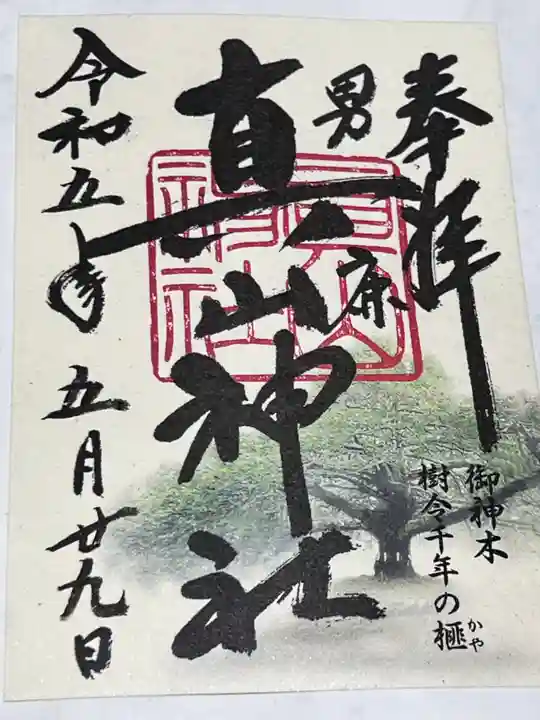 奉拝
男鹿
真山神社
令和五年 五月廿九日
御神木
樹令千年の榧
かや